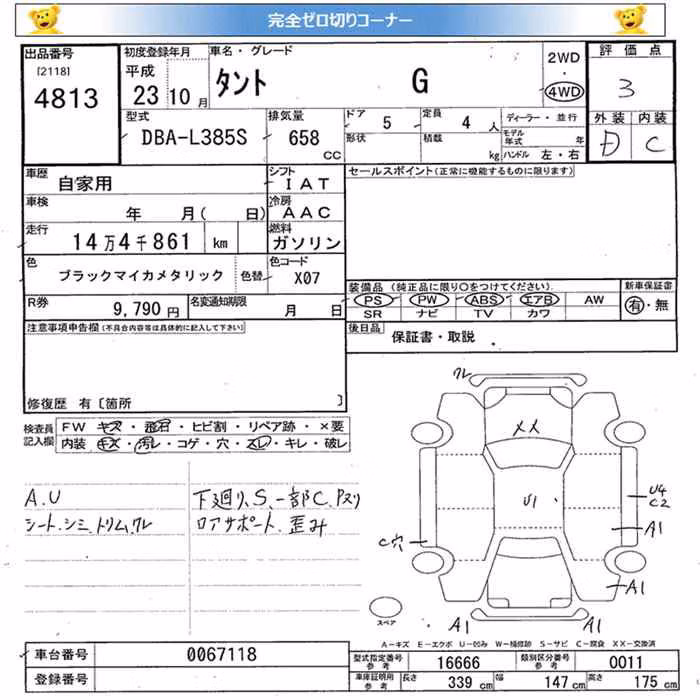 完全ゼロ切りコーナー
出品番号
[2118]
4813
初度登録年月
平成
23 10 月
車名・グレード
タント G
2WD
・
4WD
評価点
3
型式
DBA-L385S
排気量
658
CC
ドア 5
定員 4 人
形状
積載 kg
ディーラー・並行
モデル年式 年
ハンドル 左・右
外装 内装
D C
車歴
自家用
シフト
IAT
セールスポイント(正常に機能するものに限ります)
車検
年 月( 日)
冷房
AAC
走行
14万4千861 km
燃料
ガソリン
色
ブラックマイカメタリック 色替
色コード
X07
装備品 (純正品に限り〇をつけてください)
新車保証書
PS PW ABS エアB AW
有・無
SR ナビ TV カワ
R券
9,790 円
名変通知期限
月 日
後日品
保証書・取説
注意事項申告欄(不具合内容等は具体的に記入して下さい)
修復歴 有〔箇所 〕
検査員
記入欄
FW キズ・飛石・ヒビ割・リペア跡・×要
内装 キズ・汚レ・コゲ・穴・スレ・キレ・破レ
A.U
シート.シミ.トリム.ワレ
下廻り.S.一部C.Pスリ
ロアサポート.歪み
ワレ
メメ
U1
U4
C2
A1
C穴
A1
スペア
A1 A1
A-キズ E-エクボ U-凹み W-補修跡 S-サビ C-腐食 XX-交換済
車台番号
0067118
登録番号
型式指定番号
参考
16666
類別区分番号
参考
0011
車庫証明用
参考
長さ 339 cm
幅 147 cm
高さ 175 cm